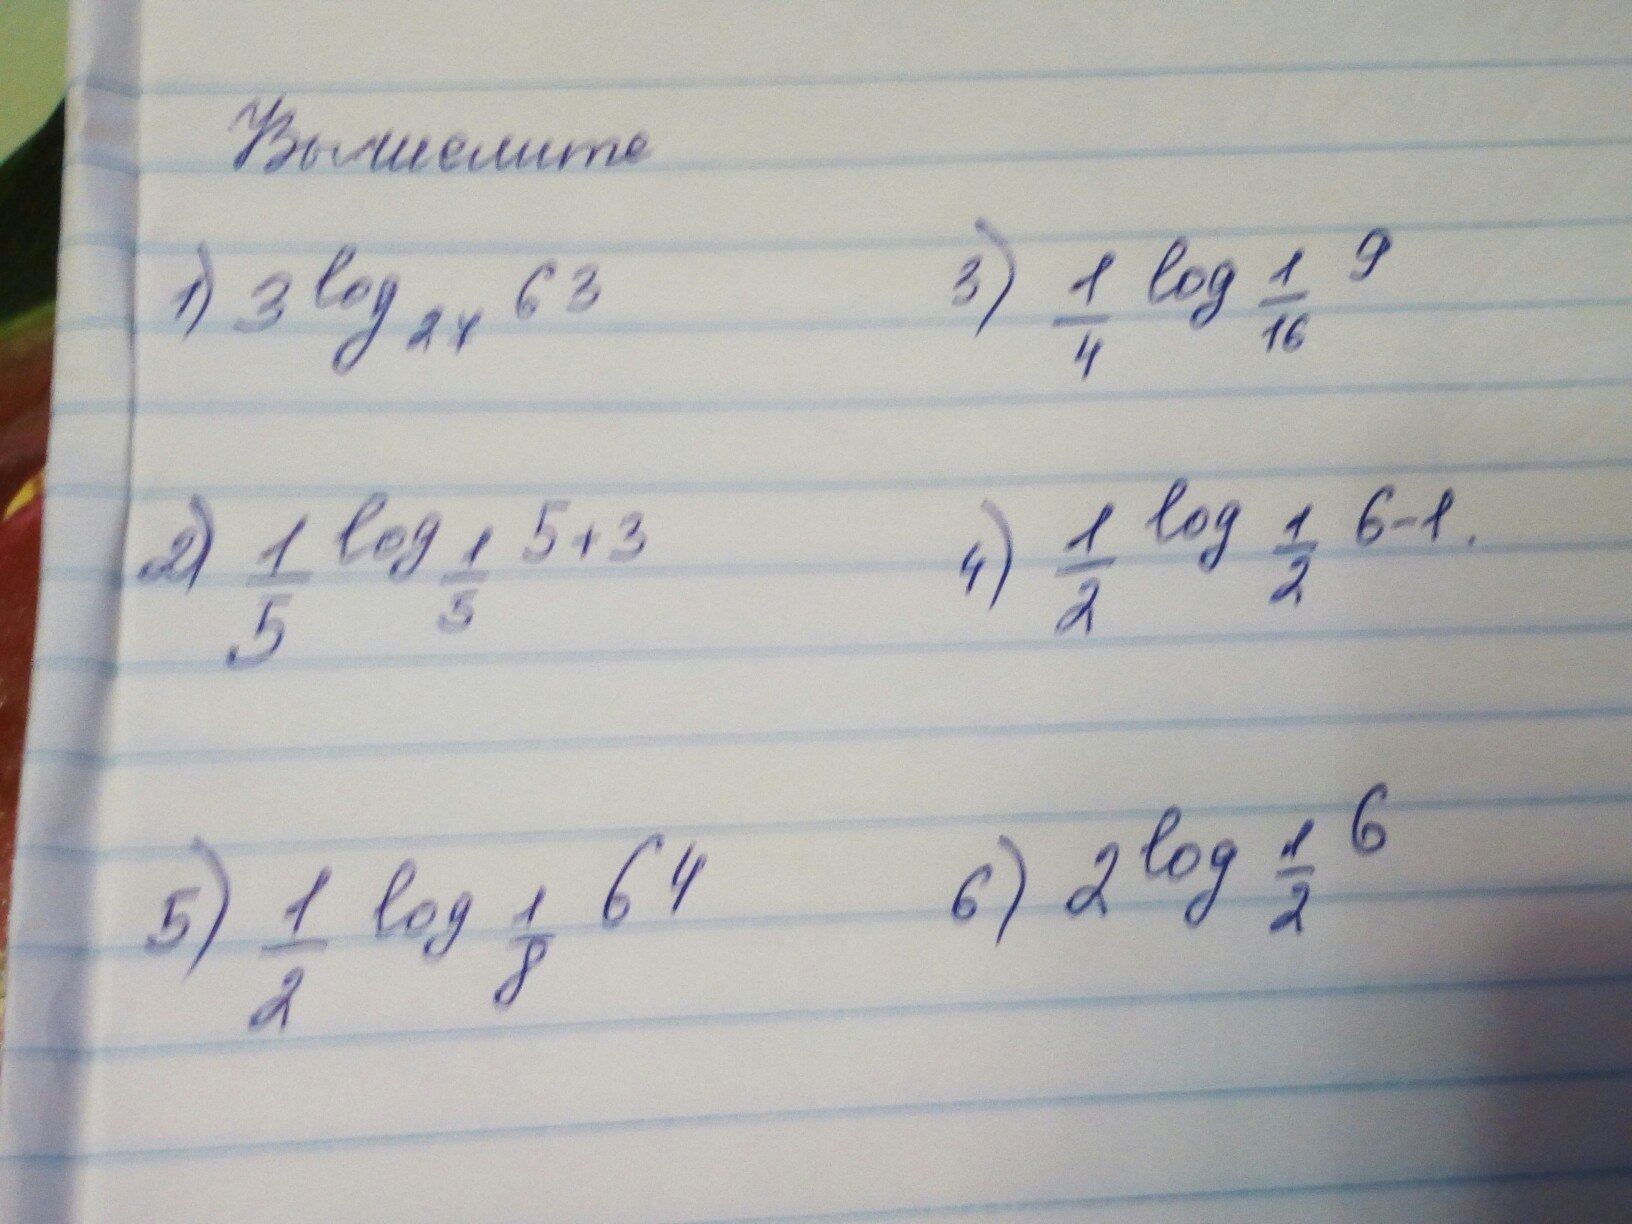 Вычислите
1) 3 log 27 63
3) 1/4 log 1/16 9
2) 1/5 log 1/5 5+3
4) 1/2 log 1/2 6-1.
5) 1/2 log 1/8 64
6) 2 log 1/2 6